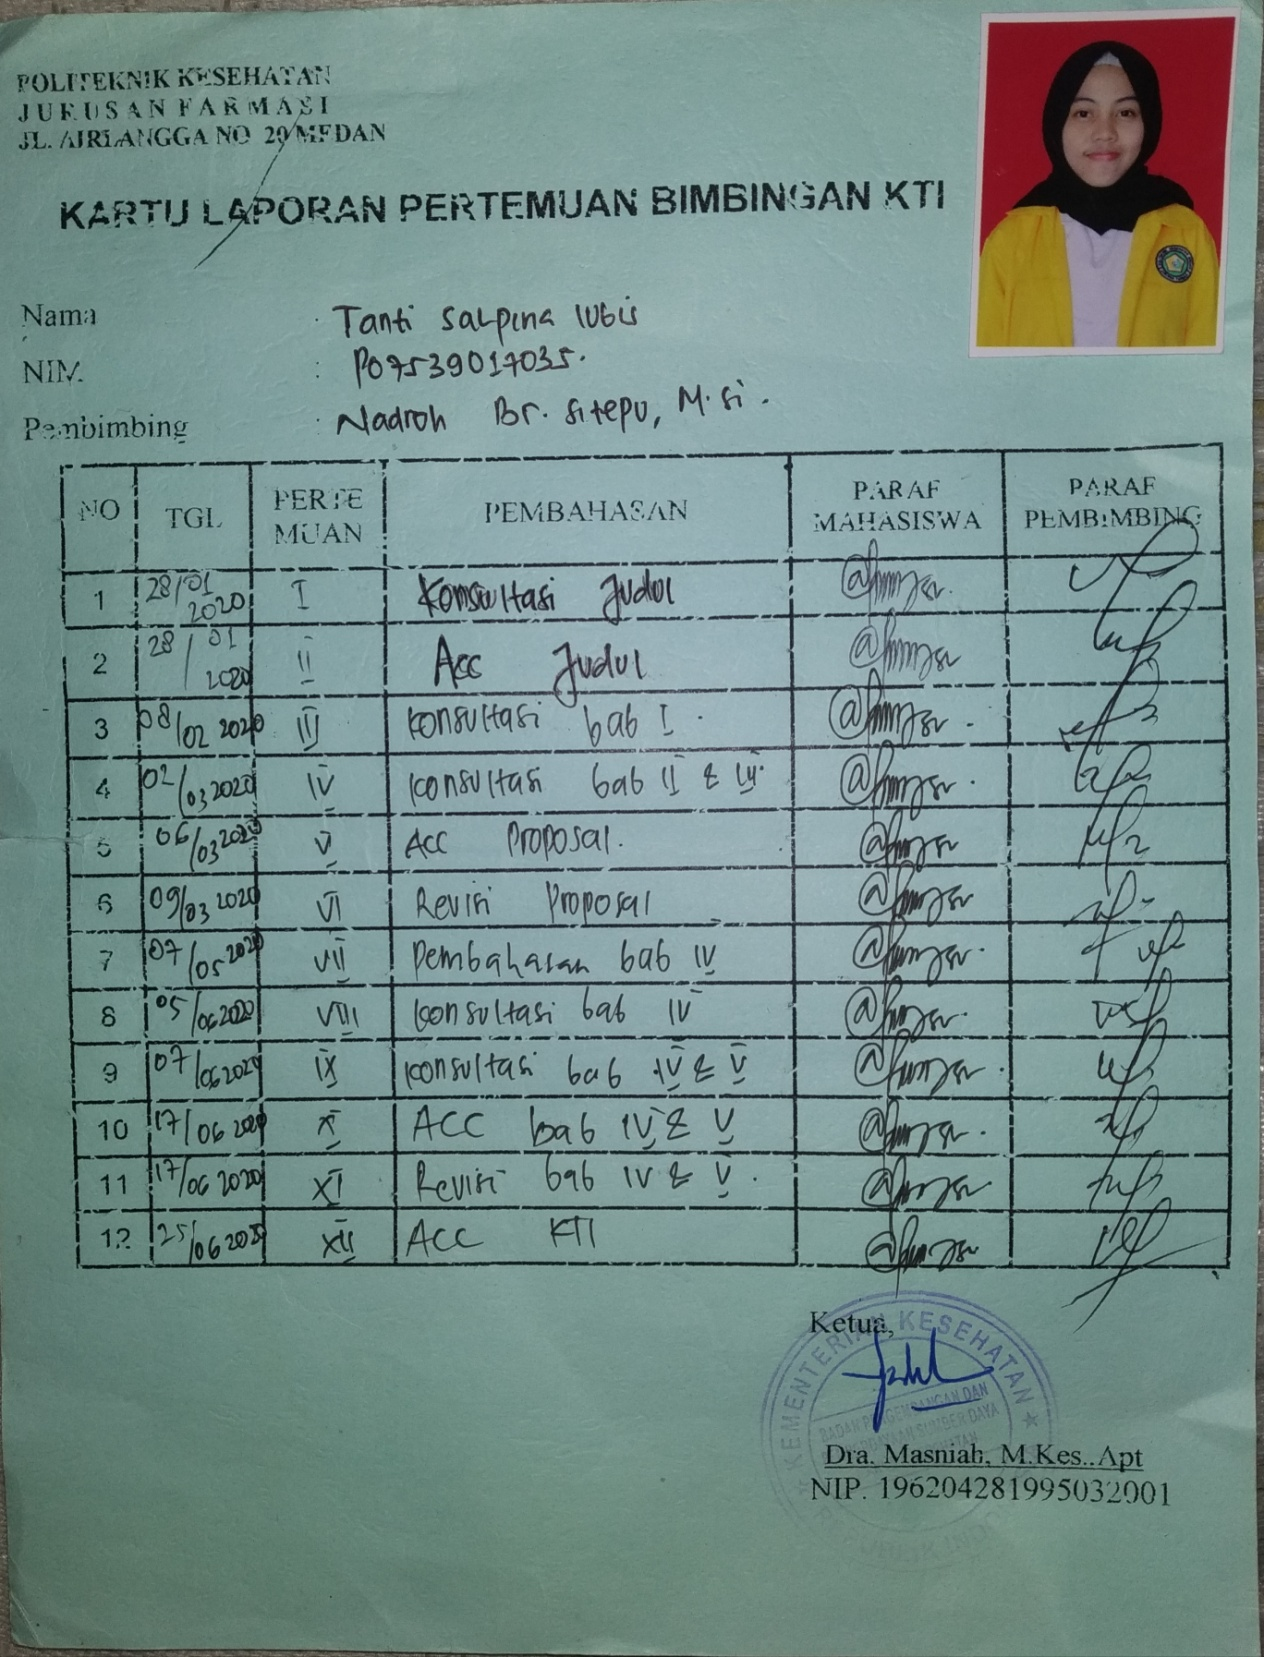 POLITEKNIK KESEHATAN
JURUSAN FARMASI
JL. AIRLANGGA NO 20 MEDAN
KARTU LAPORAN PERTEMUAN BIMBINGAN KTI
Nama : Tanti Salpina lubis
NIM. : P07539017035.
Pembimbing : Nadroh Br. Sitepu, M.si.
NO TGL PERTE MUAN PEMBAHASAN PARAF MAHASISWA PARAF PEMBIMBING
1 28/01 2020 I Konsultasi Judul
2 28/01 2020 II Acc Judul
3 08/02 2020 III konsultasi bab I.
4 02/03 2020 IV konsultasi bab II & III.
5 06/03 2020 V Acc Proposal.
6 09/03 2020 VI Revisi Proposal
7 07/05 2020 VII Pembahasan bab IV
8 05/06 2020 VIII konsultasi bab IV
9 07/06 2020 IX konsultasi bab IV & V
10 17/06 2020 X ACC bab IV & V
11 17/06 2020 XI Revisi bab IV & V.
12 25/06 2020 XII ACC KTI
Ketua,
KEMENTERIAN KESEHATAN
BADAN PENGEMBANGAN DAN
SUMBER DAYA
Dra. Masniah, M.Kes..Apt
NIP. 196204281995032001